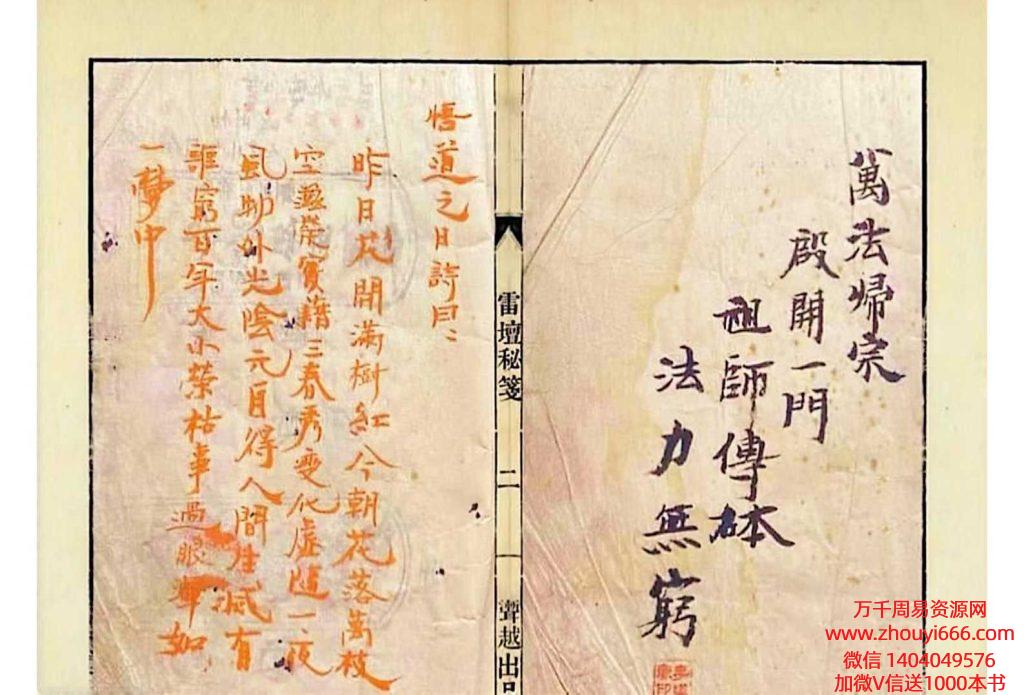 萬法歸宗
啟開一門
祖師傳本
法力無窮
雷壇秘箋
二
霽越出品
悟道之日詩曰：
昨日花開滿樹紅今朝花落萬枝
空滋榮實藉三春秀变化虛隨一夜
風物外光陰元自得人間生滅有
誰窮百年大小榮枯事過眼渾如
一夢中
万千周易资源网
www.zhouyi666.com
微信 1404049576
加微V信送1000本书